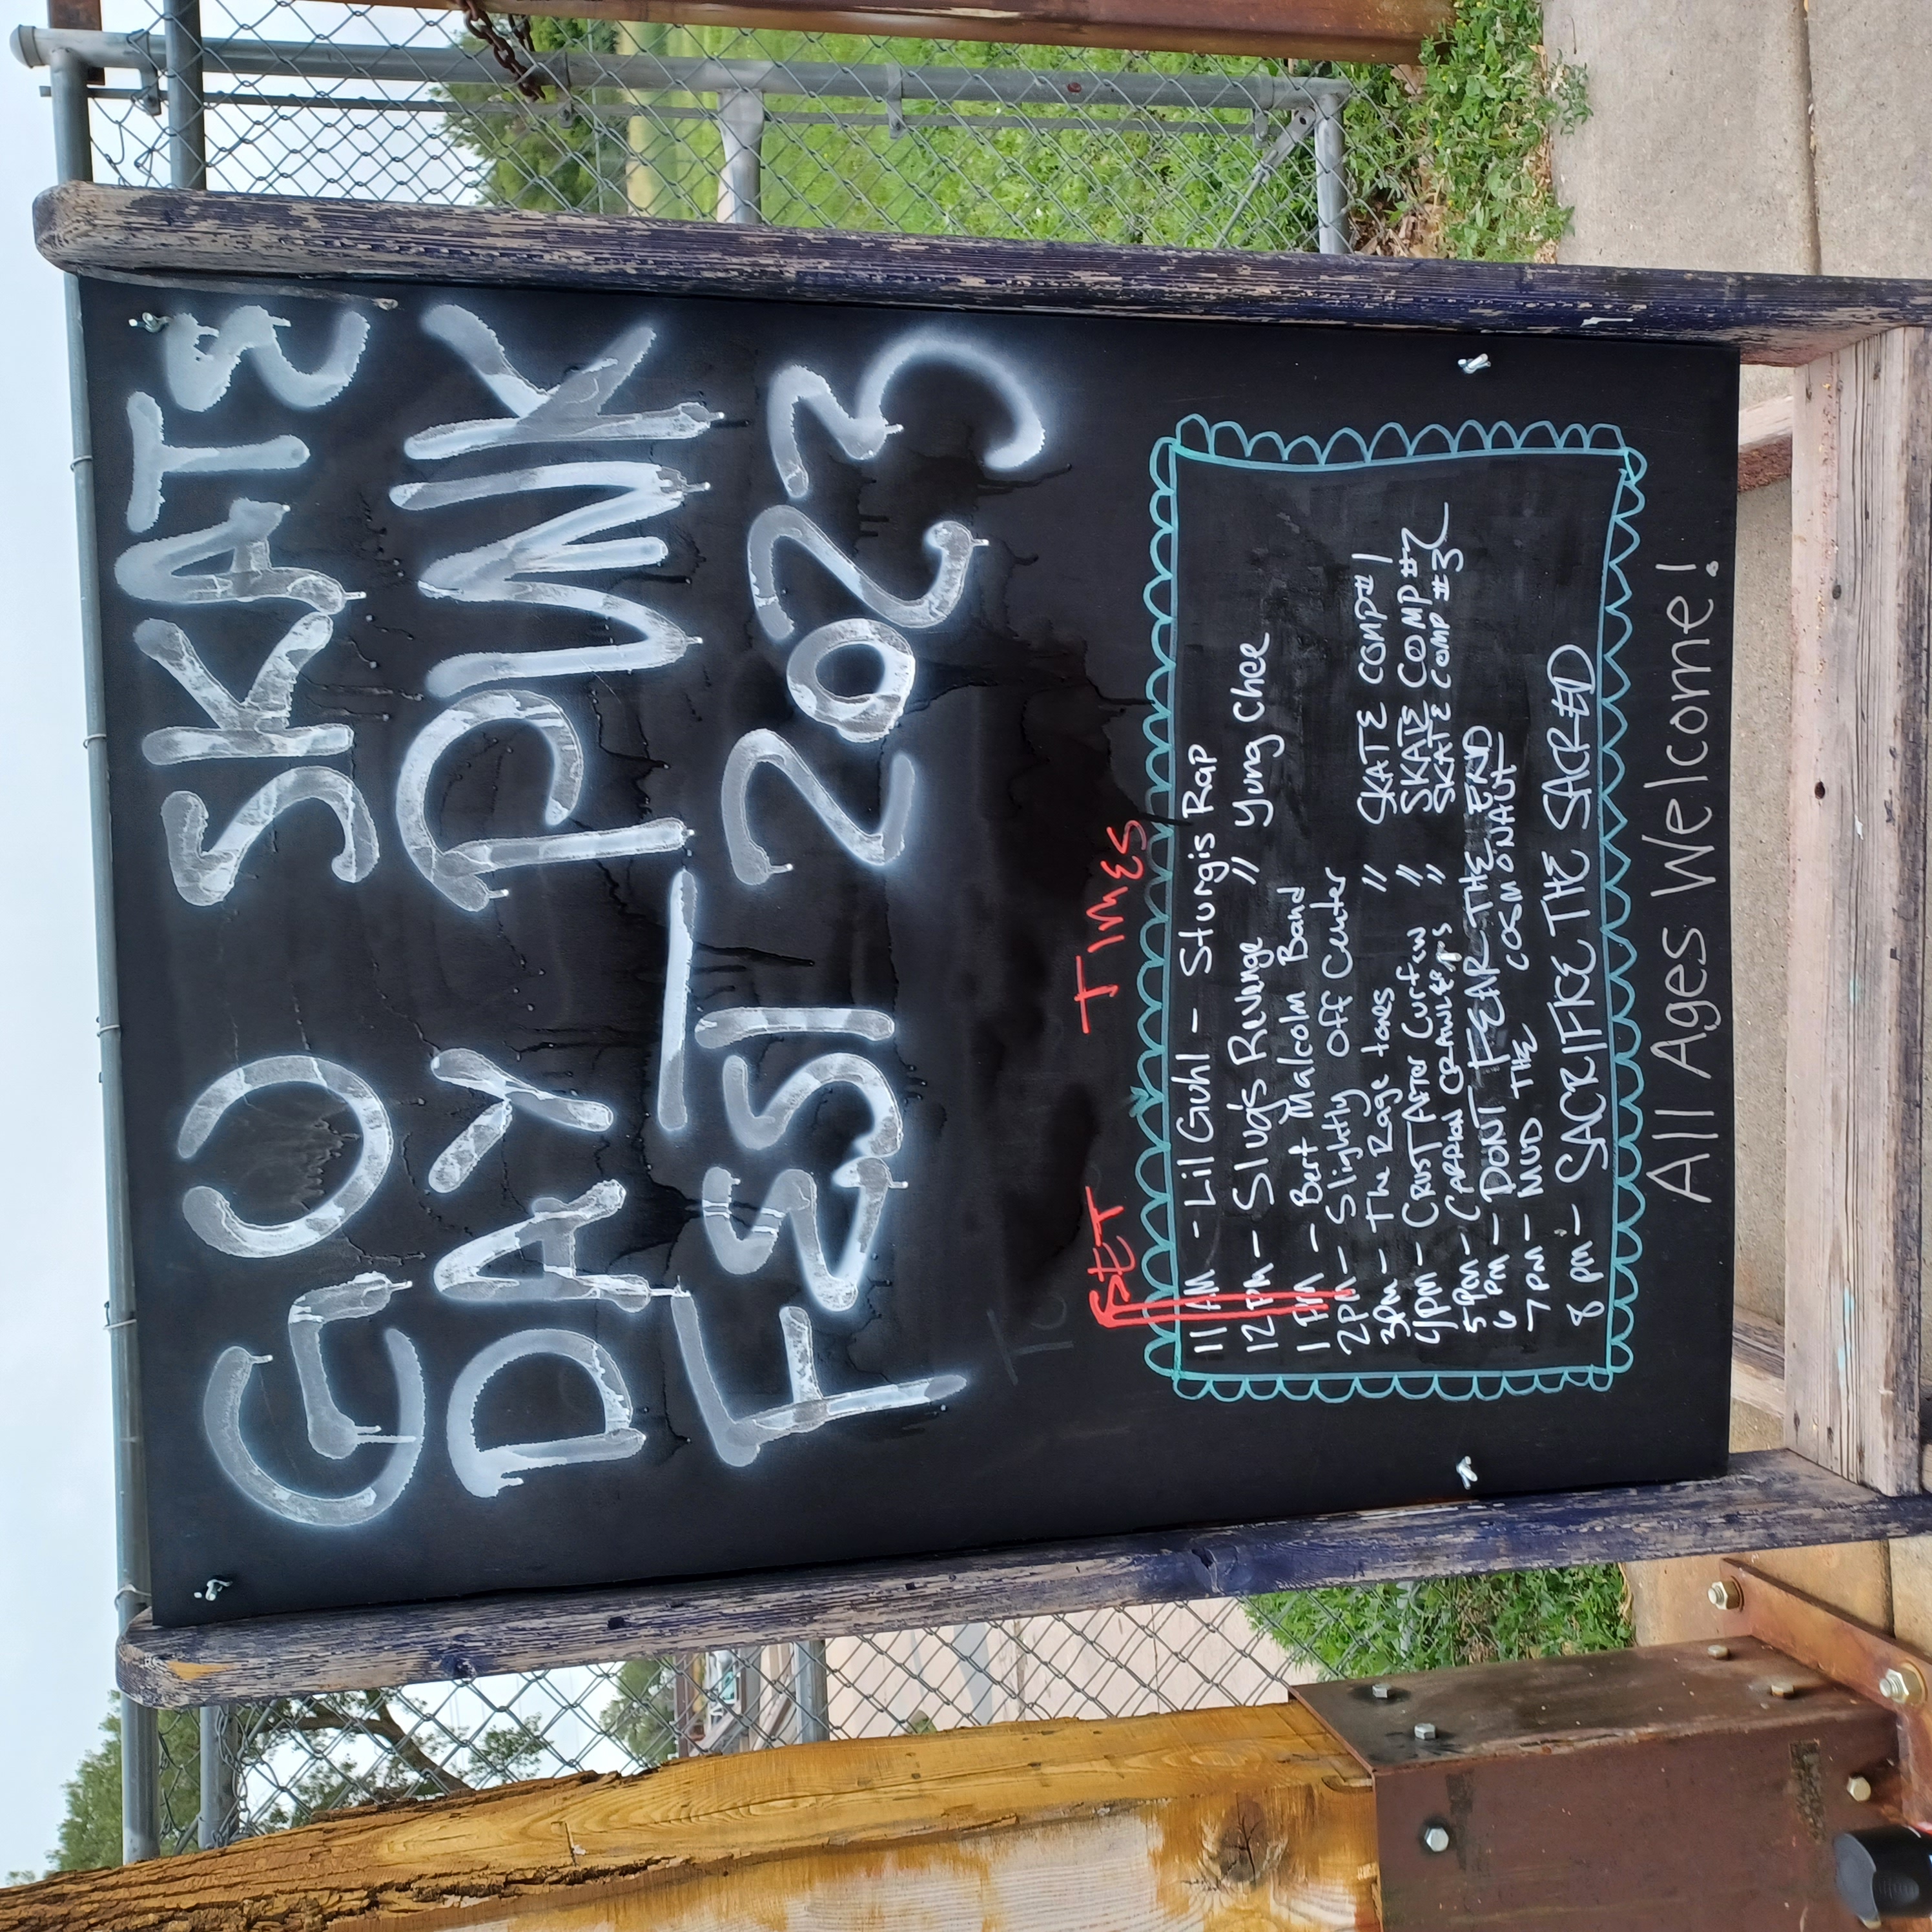 GO SKATE
DAY PUNK
FEST 2023
SET TIMES
11 AM - Lil Guhl - Sturgis Rap
12 PM - Slug's Revenge // Yung Chee
1 PM - Bert Malcolm Band
2PM - Slightly Off Center
3PM - The Rage tones // SKATE COMP #1
4PM - CRUST AFTER Curfew // SKATE COMP #2
5PM - CARRION CRAWLERS // SKATE COMP #3
6 PM - DONT FEAR THE END
7 PM - MUD THE COSMONAUT
8 PM - SACRIFICE THE SACRED
All Ages Welcome!